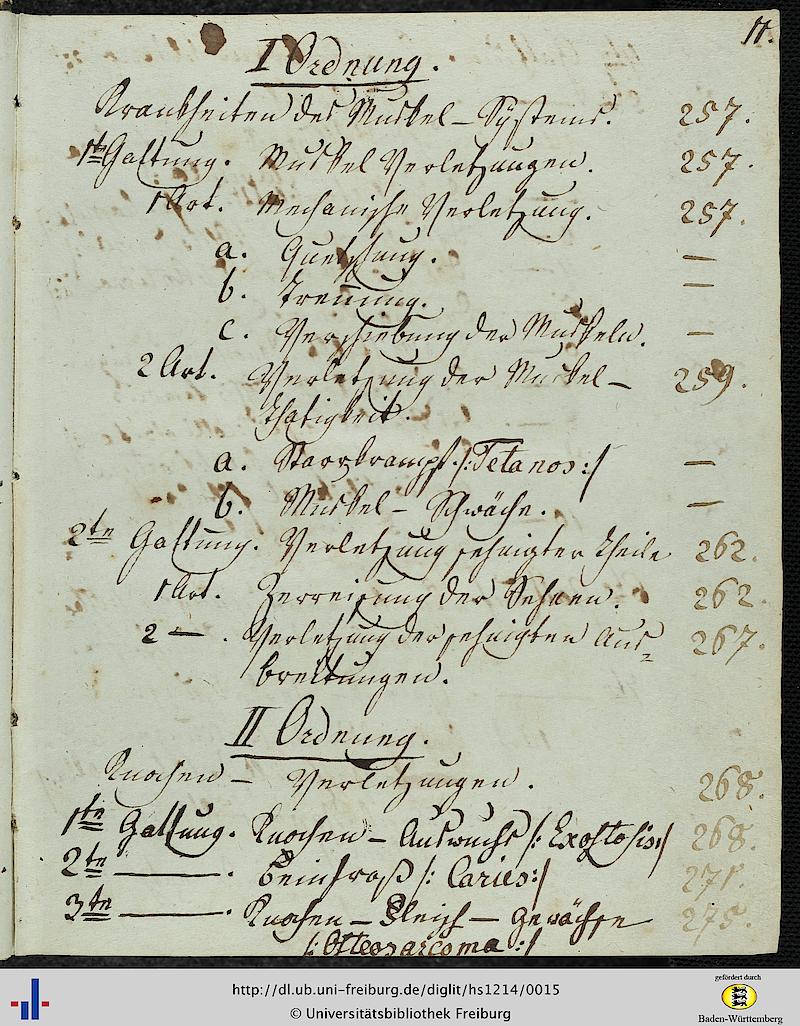 11.
I Ordnung.
Krankheiten des Muskel-Systems. 257.
1te Gattung. Muskel Verletzungen. 257.
1 Art. Mechanische Verletzung. 257.
a. Quetschung. —
b. Trennung. —
c. Verschiebung der Muskeln. —
2 Art. Verletzung der Muskel- 259.
thätigkeit.
a. Starrkrampf /: Tetanos :/ —
b. Muskel-Schwäche. —
2te Gattung. Verletzung sehnigter Theile 262.
1 Art. Zerreißung der Sehnen. 262.
2 — . Verletzung der sehnigten Aus= 267.
breitungen.
II Ordnung.
Knochen - Verletzungen. 268.
1te Gattung. Knochen-Auswuchs /: Exostosis :/ 268.
2te ——. Beinfraß /: Caries :/ 271.
3te ——. Knochen-Fleisch-Gewächse 275.
/: Osteosarcoma :/
http://dl.ub.uni-freiburg.de/diglit/hs1214/0015
© Universitätsbibliothek Freiburg
gefördert durch
Baden-Württemberg